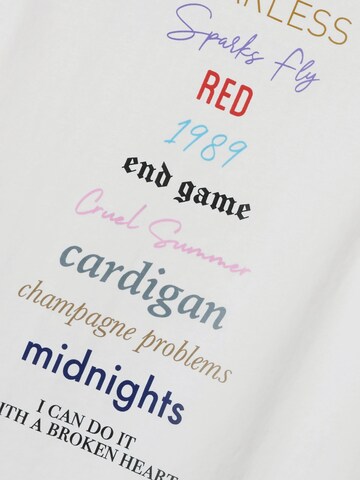 Sparks Fly
RED
1989
end game
Cruel Summer
cardigan
champagne problems
midnights
I CAN DO IT
A BROKEN HEART